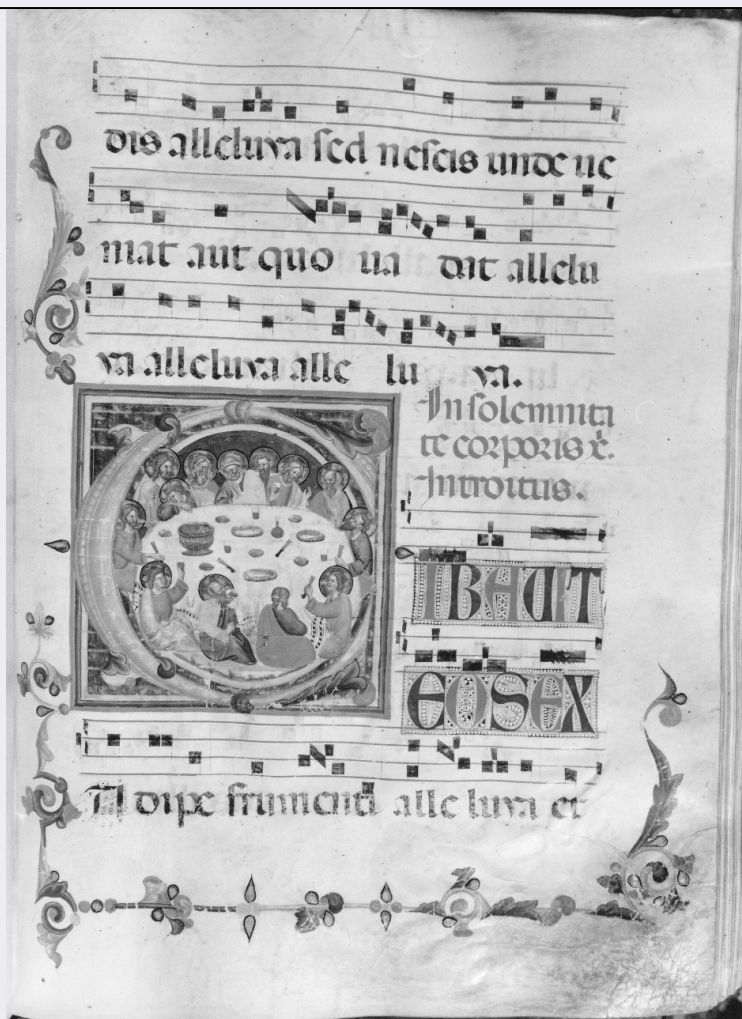 dis alleluya sed nescis unde ue
niat aut quo ua dat allelu
ya alleluya alle lu ya.
In solemnita
te corporis x̄.
Introitus.
CIBAUIT
EOS EX
A dipe frumenti alle luya et